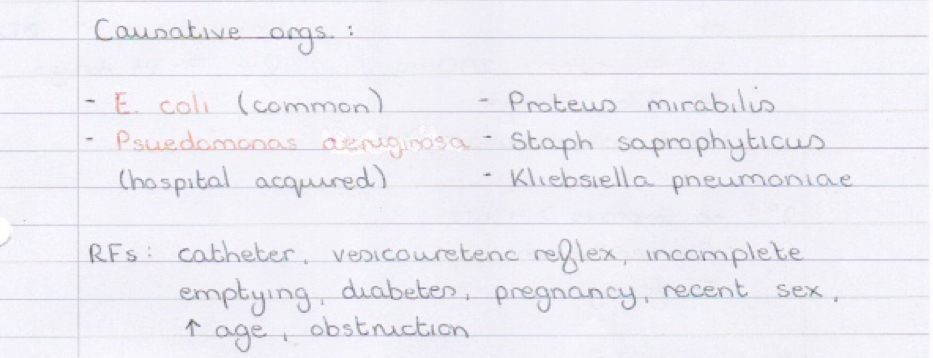 Causative orgs. :
- E. coli (common) - Proteus mirabilis
- Psuedomonas aeruginosa - Staph saprophyticus
(hospital acquired) - Kliebsiella pneumoniae
RFs : catheter, vesicoureteric reflex, incomplete
emptying, diabetes, pregnancy, recent sex,
↑ age, obstruction